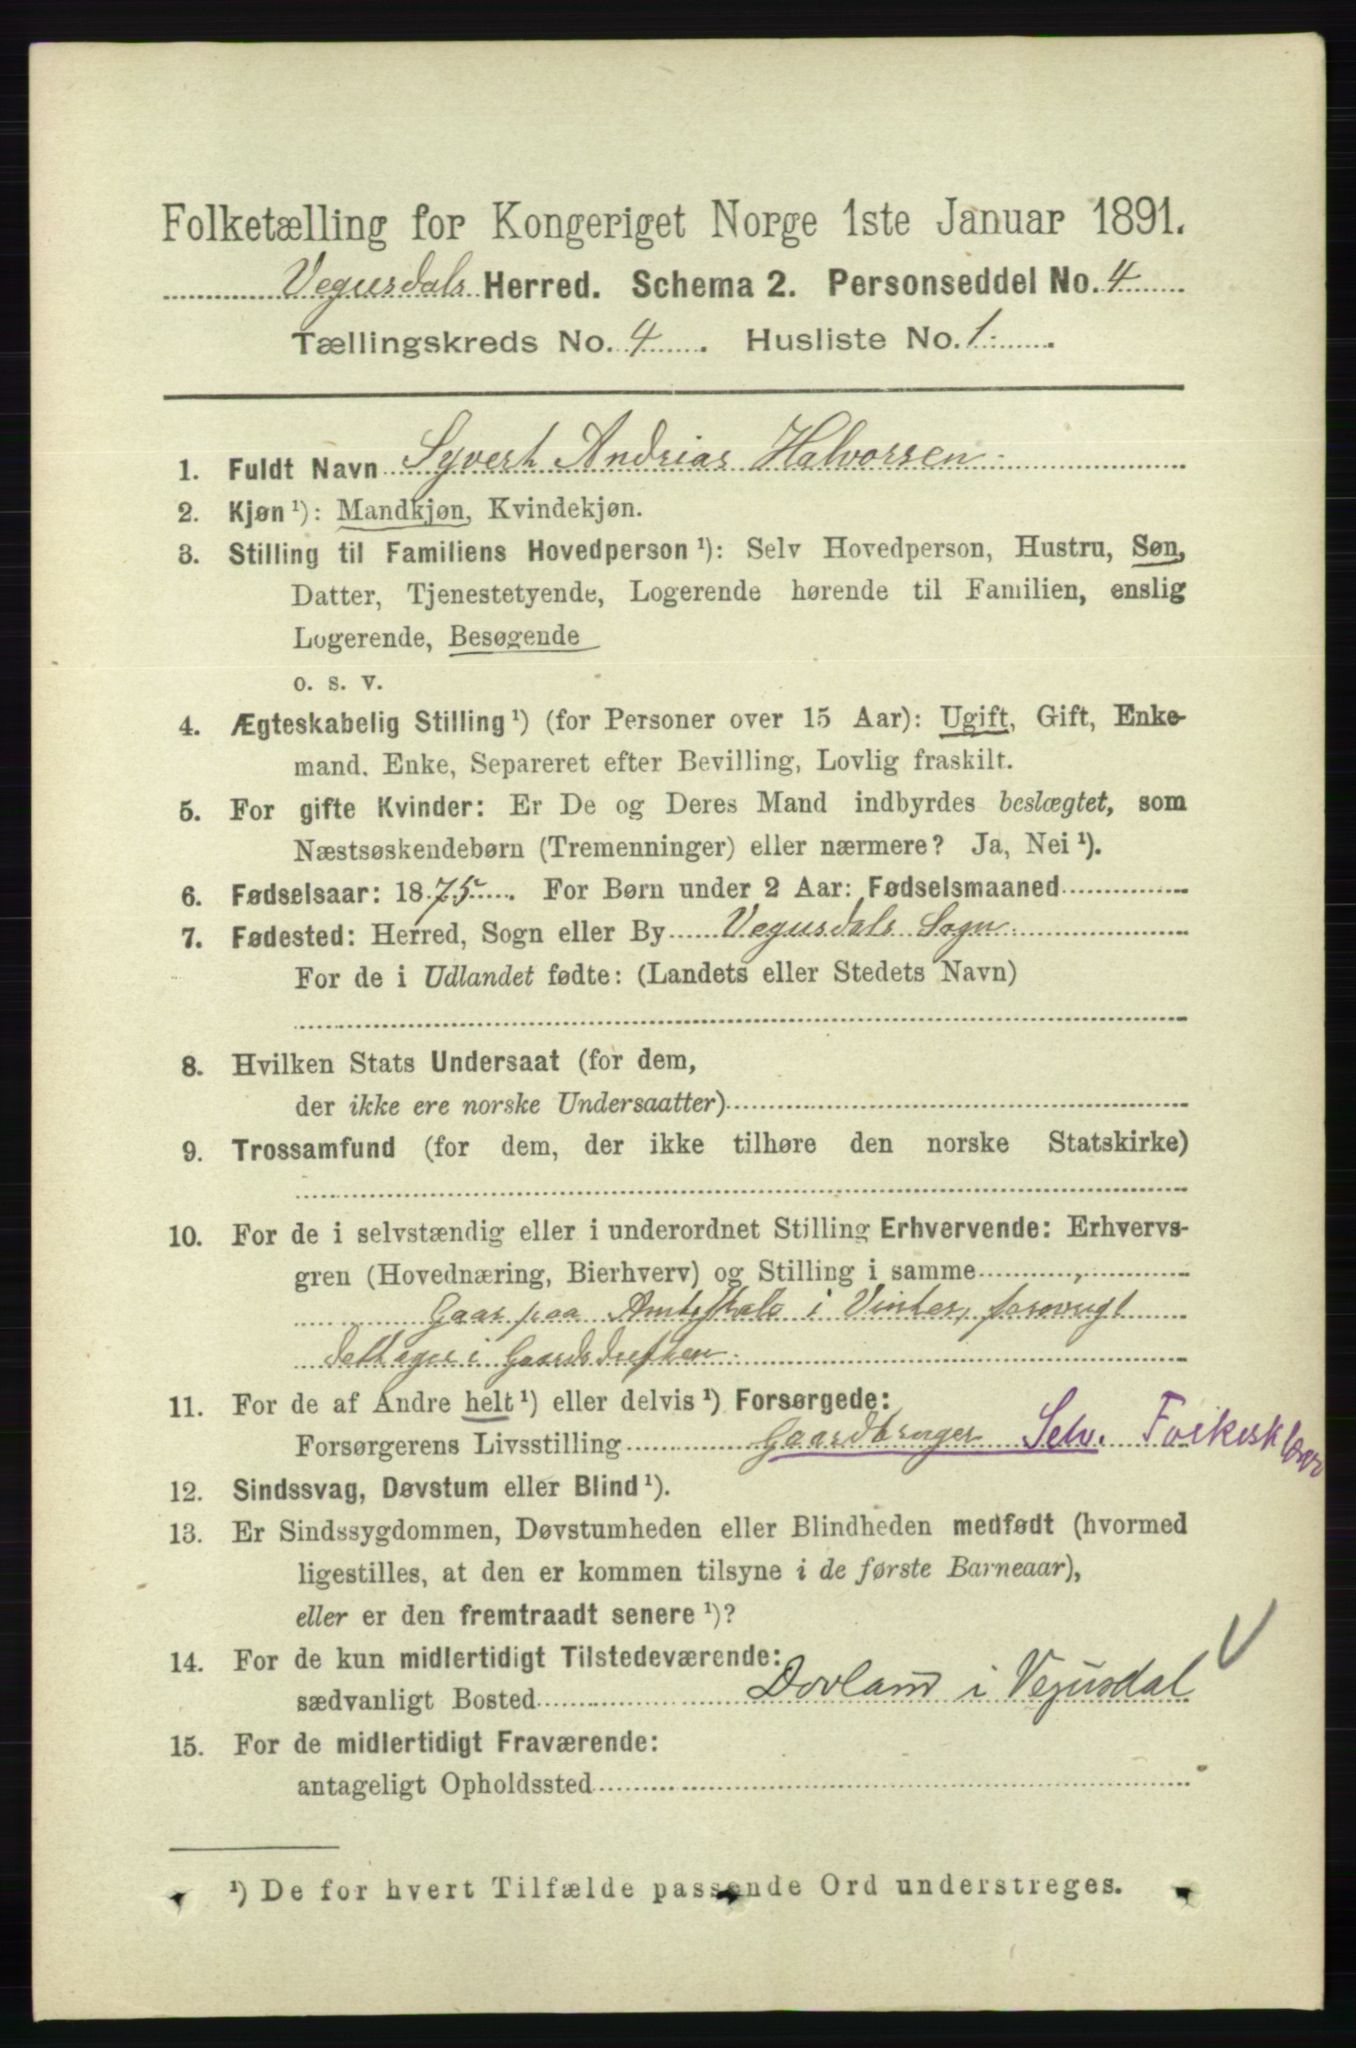 Folketælling for Kongeriget Norge 1ste Januar 1891.
Vegusdals Herred. Schema 2. Personseddel No. 4
Tællingskreds No. 4. Husliste No. 1.
1. Fuldt Navn Syvert Andrias Halvorsen
2. Kjøn ¹): Mandkjøn, Kvindekjøn.
3. Stilling til Familiens Hovedperson ¹): Selv Hovedperson, Hustru, Søn,
Datter, Tjenestetyende, Logerende hørende til Familien, enslig
Logerende, Besøgende
o. s. v.
4. Ægteskabelig Stilling ¹) (for Personer over 15 Aar): Ugift, Gift, Enke-
mand, Enke, Separeret efter Bevilling, Lovlig fraskilt.
5. For gifte Kvinder: Er De og Deres Mand indbyrdes beslægtet, som
Næstsøskendebørn (Tremenninger) eller nærmere? Ja, Nei ¹).
6. Fødselsaar: 1875. For Børn under 2 Aar: Fødselsmaaned
7. Fødested: Herred, Sogn eller By Vegusdals Sogn
For de i Udlandet fødte: (Landets eller Stedets Navn)
8. Hvilken Stats Undersaat (for dem,
der ikke ere norske Undersaatter)
9. Trossamfund (for dem, der ikke tilhøre den norske Statskirke)
10. For de i selvstændig eller i underordnet Stilling Erhvervende: Erhvervs-
gren (Hovednæring, Bierhverv) og Stilling i samme
Gaar paa Amtsskole i Vinter, forøvrigt
deltager i Gaardsdriften.
11. For de af Andre helt ¹) eller delvis ¹) Forsørgede:
Forsørgerens Livsstilling Gaardbruger Selv.
12. Sindssvag, Døvstum eller Blind ¹).
13. Er Sindssygdommen, Døvstumheden eller Blindheden medfødt (hvormed
ligestilles, at den er kommen tilsyne i de første Barneaar),
eller er den fremtraadt senere ¹)?
14. For de kun midlertidigt Tilstedeværende:
sædvanligt Bosted Dovland i Vegusdal
15. For de midlertidigt Fraværende:
antageligt Opholdssted
¹) De for hvert Tilfælde passende Ord understreges.